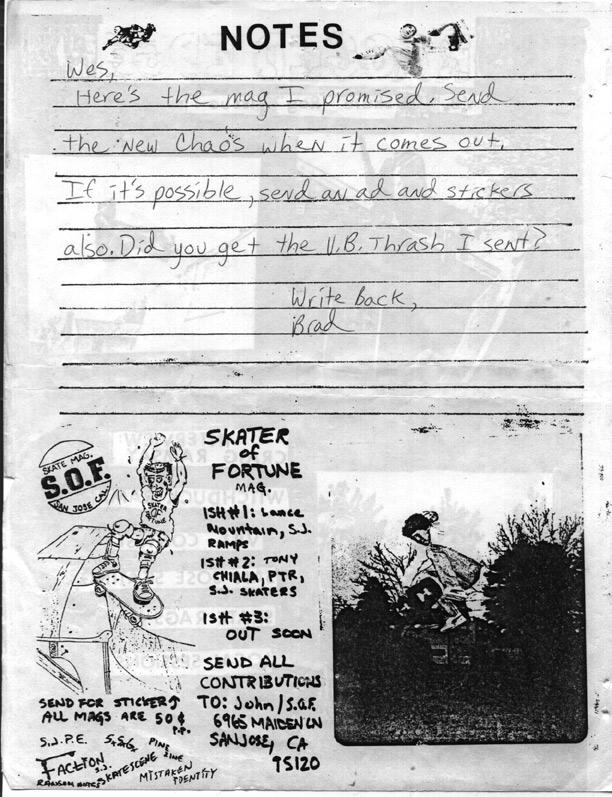 NOTES
Wes,
Here's the mag I promised. Send
the new Chaos when it comes out.
If it's possible, send an ad and stickers
also. Did you get the V.B. Thrash I sent?
Write Back,
Brad
SKATE MAG.
S.O.F.
SAN JOSE CAL.
SKATER
of
FORTUNE
MAG.
ISH#1: Lance
Mountain, S.J.
RAMPS
ISH#2: TONY
CHIALA, PTR,
S.J. SKATERS
ISH #3:
OUT SOON
SEND ALL
CONTRIBUTIONS
TO: John/S.O.F.
6965 MAIDEN LN
SAN JOSE, CA
95120
SEND FOR STICKER↑
ALL MAGS ARE 50¢
P.P.
S.J.P.E.
S.S.G.
FACTION
S.J.
SKATESCENE
MISTAKEN
IDENTITY